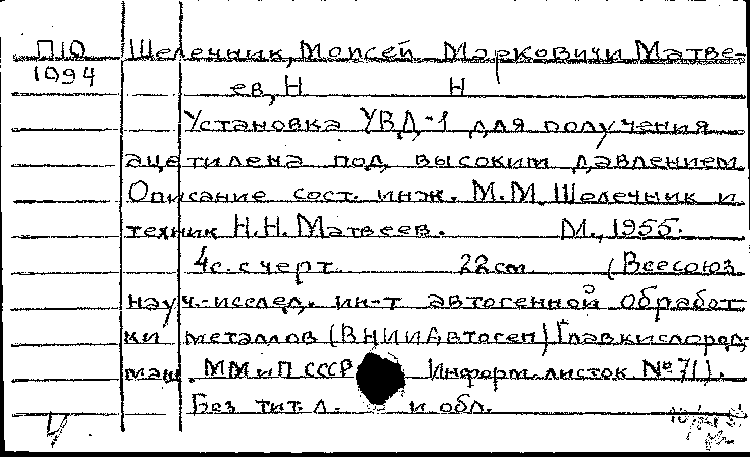 П10 Шелечник, Моисей Маркович и Матве-
1094 ев, Н Н
Установка УВД-1 для получения
ацетилена под высоким давлением
Описание сост. инж. М.М. Шелечник и
техник Н.Н. Матвеев. М., 1955.
4с. с черт. 22см (Всесоюз.
науч.-исслед. ин-т автогенной обработ
ки металлов (ВНИИАвтоген) Главкислород-
маш. ММиП СССР Информ. листок № 71).
Без тит. л. и обл.